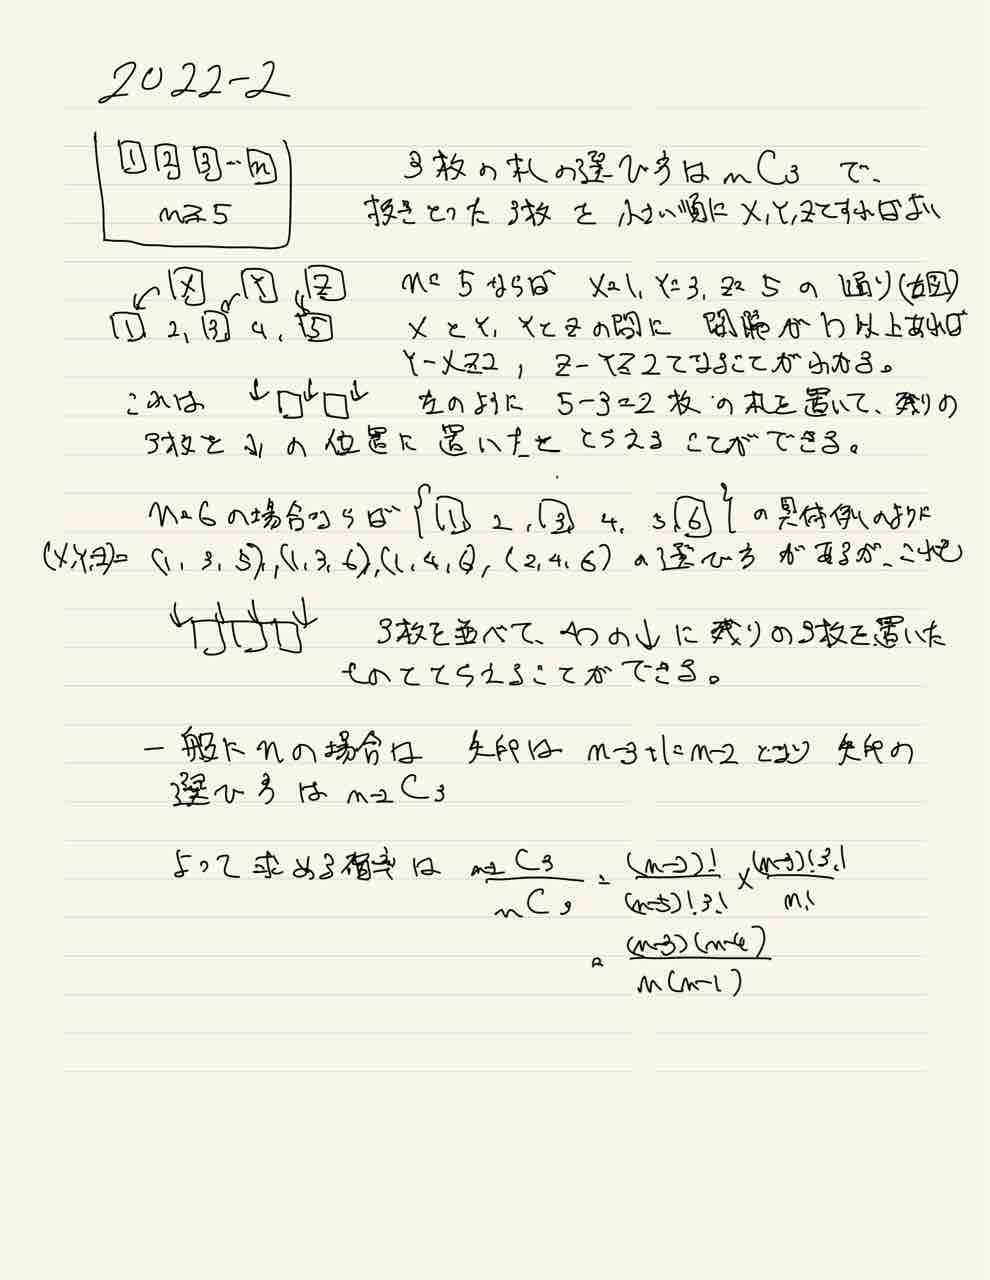 2022-2
1 2 3 … n
n≧5
3枚の札の選び方は nC3 で、
抜きとった3枚を小さい順にX,Y,Zとすればよい
X Y Z
1, 2, 3, 4, 5
n=5ならば X=1, Y=3, Z=5 の 1通り(左図)
XとY, YとZの間に 間隔が1つ以上あれば
Y-X≧2, Z-Y≧2となることがわかる。
これは ↓□↓□↓ 左のように 5-3=2枚の札を置いて、残りの
3枚を↓の位置に置いたととらえることができる。
n=6の場合ならば { 1, 2, 3, 4, 5, 6 } の具体例のように
(X,Y,Z)= (1, 3, 5), (1, 3, 6), (1, 4, 6), (2, 4, 6) の選び方があるが、これも
↓□↓□↓□↓ 3枚を並べて、4つの↓に残りの3枚を置いた
ものととらえることができる。
一般にnの場合は 矢印は n-3+1=n-2 となり 矢印の
選び方は n-2C3
よって求める確率は n-2C3 / nC3 = (n-2)! / (n-5)!3! × (n-3)!3! / n!
= (n-3)(n-4) / n(n-1)